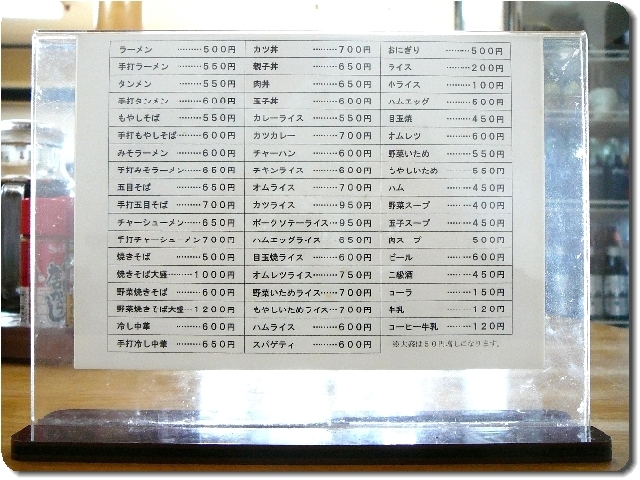 ラーメン ………500円
手打ラーメン ………550円
タンメン ………550円
手打タンメン ………600円
もやしそば ………550円
手打もやしそば……600円
みそラーメン ………600円
手打みそラーメン……650円
五目そば ………650円
手打五目そば ………700円
チャーシューメン……650円
手打チャーシューメン 700円
焼きそば ………500円
焼きそば大盛………1000円
野菜焼きそば ………600円
野菜焼きそば大盛…1200円
冷し中華 ………600円
手打冷し中華 ………650円
カツ丼 ………700円
親子丼 ………650円
肉丼 ………650円
玉子丼 ………600円
カレーライス ………550円
カツカレー ………700円
チャーハン ………600円
チキンライス ………600円
オムライス ………700円
カツライス ………950円
ポークソテーライス…950円
ハムエッグライス 650円
目玉焼ライス ………600円
オムレツライス………750円
野菜いためライス……700円
もやしいためライス…700円
ハムライス ………600円
スパゲティ ………600円
おにぎり ………500円
ライス ………200円
小ライス ………100円
ハムエッグ ………600円
目玉焼 ………450円
オムレツ ………600円
野菜いため ………550円
もやしいため ………550円
ハム ………450円
野菜スープ ………400円
玉子スープ ………450円
肉スープ 500円
ビール ………600円
二級酒 ………450円
コーラ ………150円
牛乳 ………120円
コーヒー牛乳 ………120円
※大盛は50円増しになります。